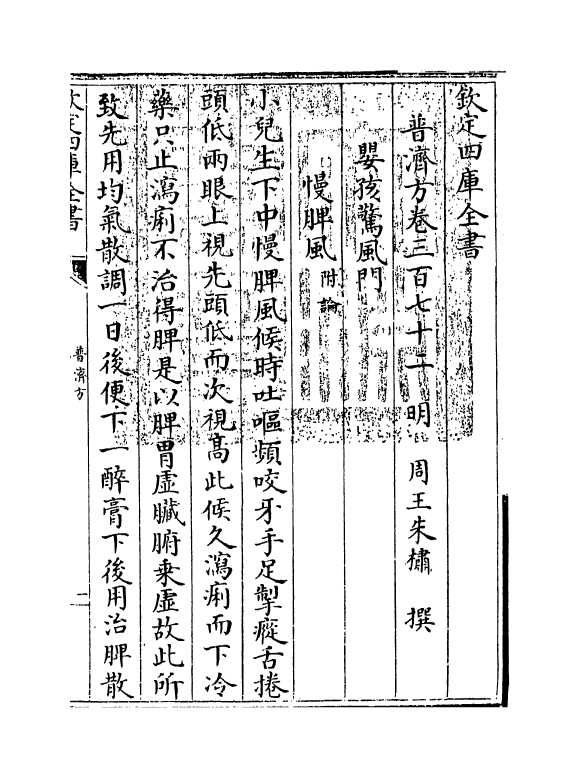 欽定四庫全書
普濟方卷三百七十一 明 周王朱橚 撰
嬰孩驚風門
慢脾風附論
小兒生下中慢脾風候時吐嘔頻咬牙手足掣瘲舌捲
頭低兩眼上視先頭低而次視髙此候久瀉痢而下冷
藥只止瀉痢不治得脾是以脾胃虛臟腑乗虛故此所
致先用均氣散調一日後便下一醉膏下後用治脾散
欽定四庫全書
普濟方
二